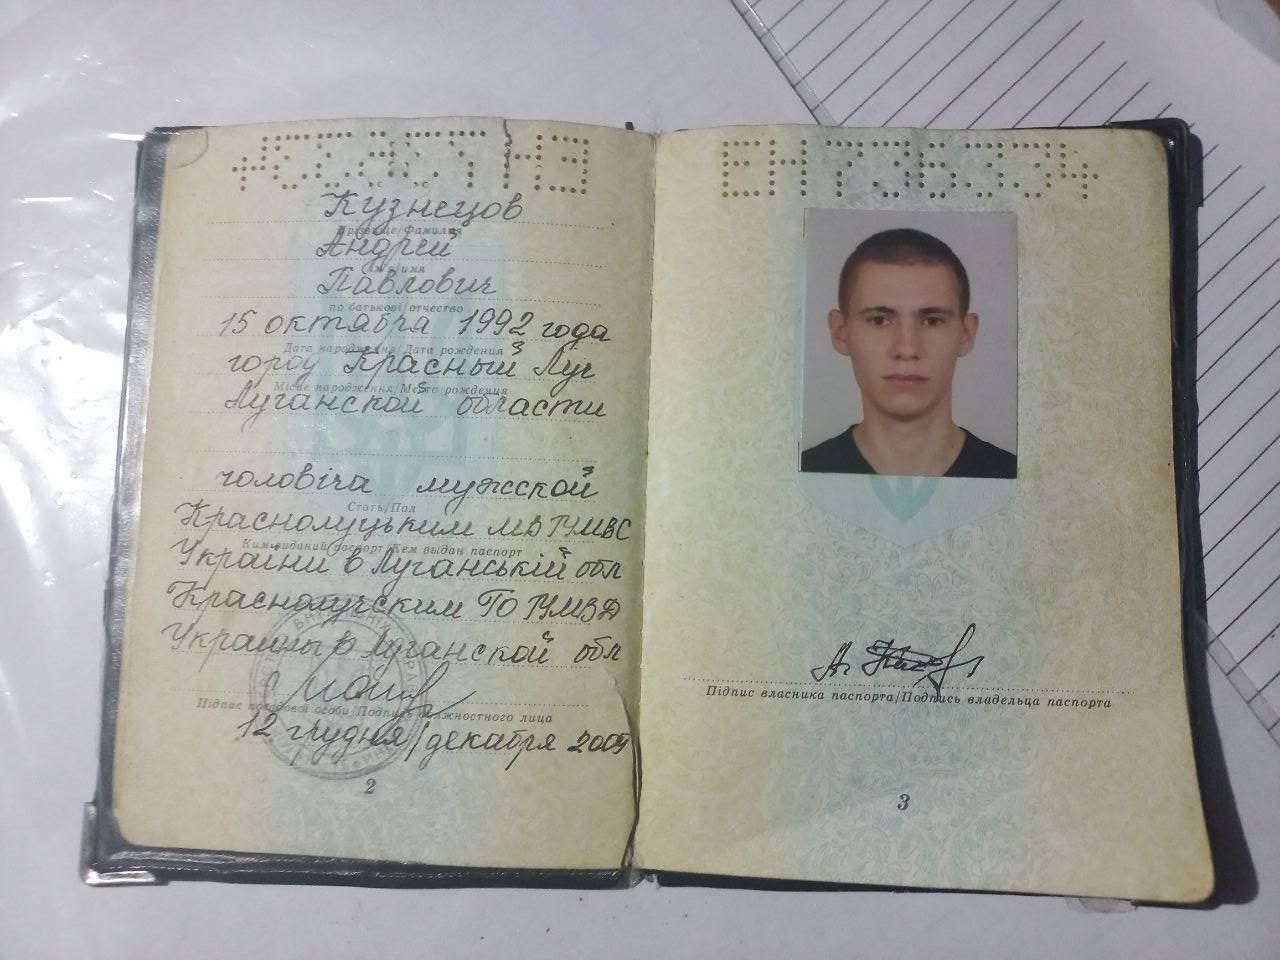 Кузнецов
Прізвище/Фамилия
Андрей
Ім'я/имя
Павлович
по батькові/отчество
15 октября 1992 года
Дата народження/Дата рождения
город Красный Луч
Місце народження/Место рождения
Луганской области
чоловіча мужской
Стать/Пол
Краснолуцьким МВ ГУМВС
Ким виданий паспорт/Кем выдан паспорт
України в Луганській обл
Краснолучским ГО ГУМВД
Украины в Луганской обл
Підпис посадової особи/Подпись должностного лица
12 грудня/декабря 2009
2
ЕН736334
Підпис власника паспорта/Подпись владельца паспорта
3